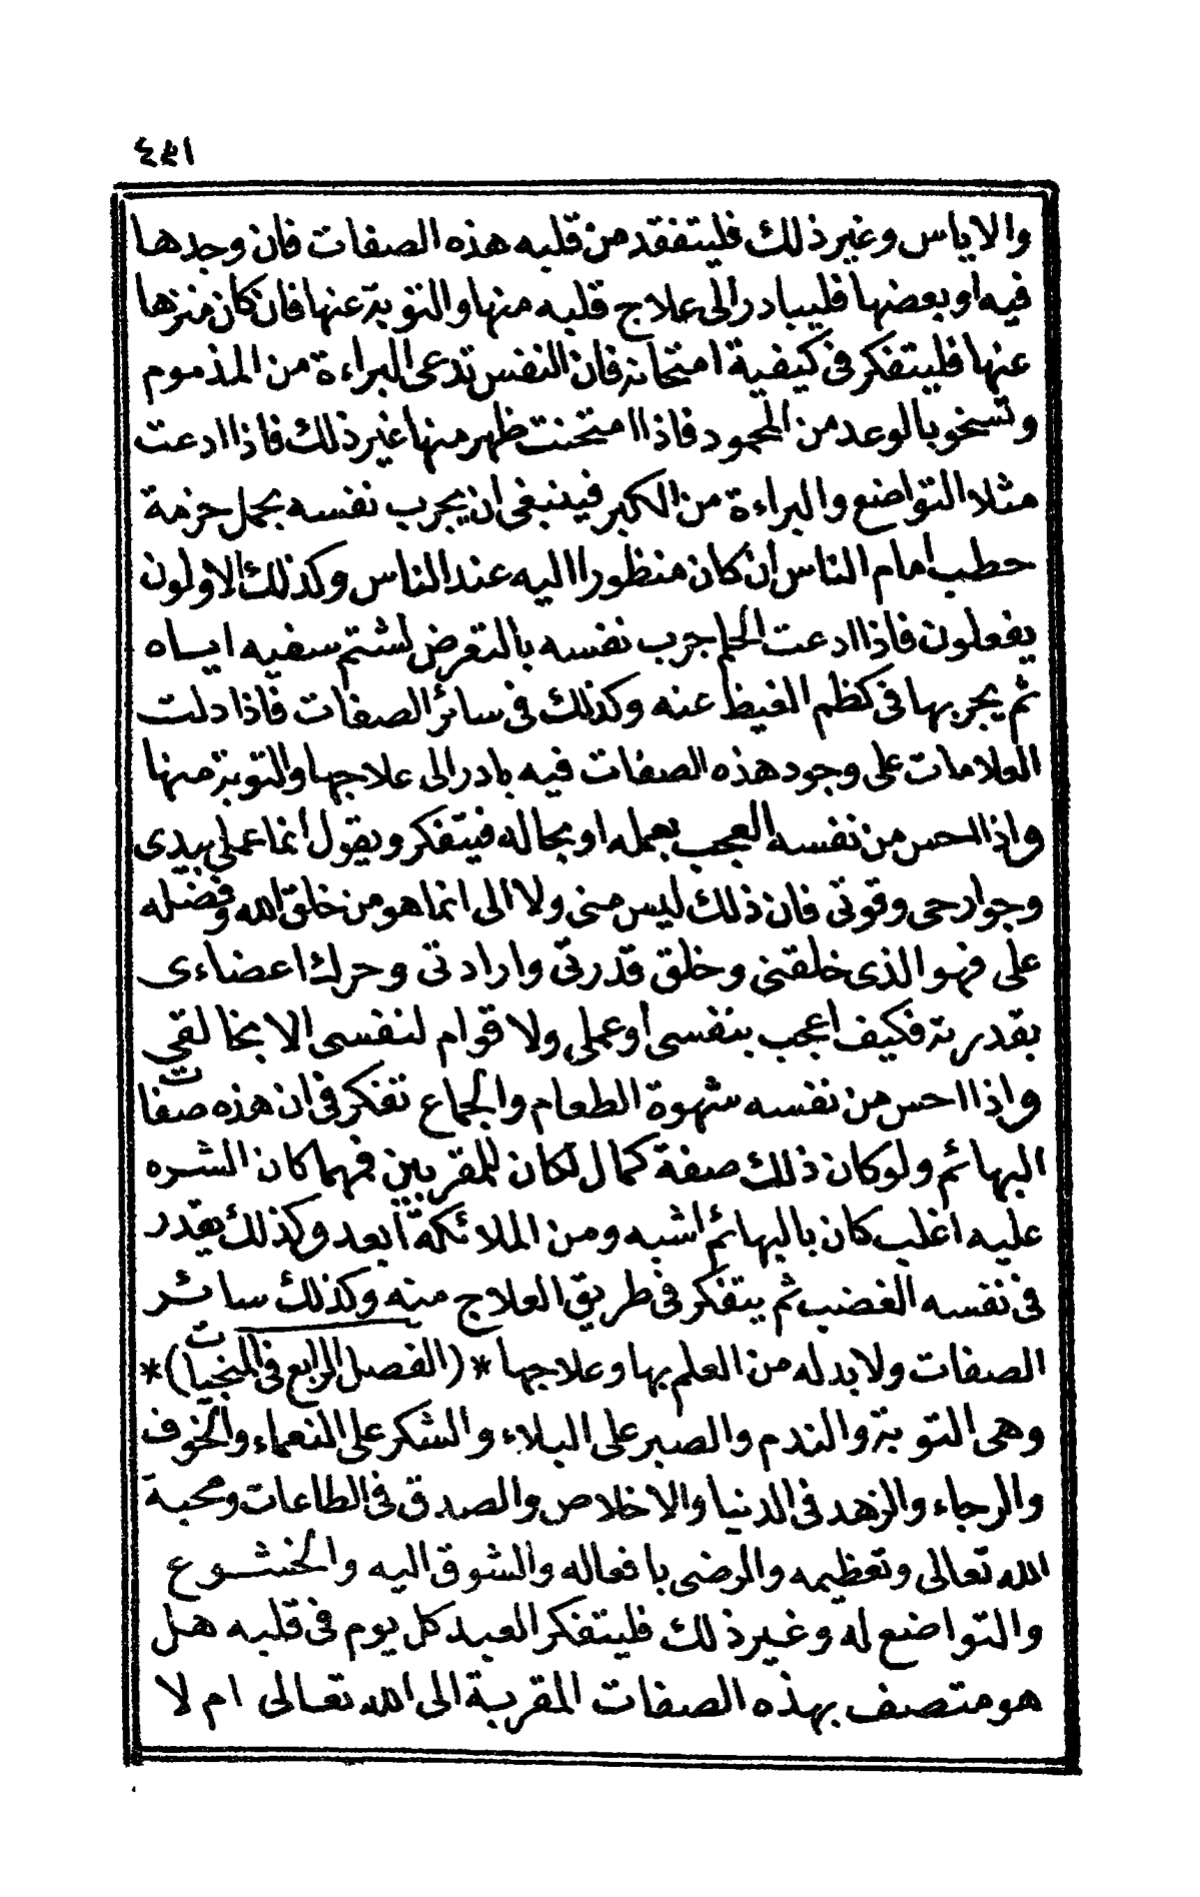 ٤٥١
والاياس وغير ذلك فليتفقد من قلبه هذه الصفات فان وجدها
فيه او بعضها فليبادر الى علاج قلبه منها والتوبة عنها فان كان منزها
عنها فليتفكر فى كيفية امتحانه فان النفس تدعى البراءة من المذموم
وتسخو بالوعد من المحمود فاذا امتحنت ظهر منها غير ذلك فاذا ادعت
مثلا التواضع والبراءة من الكبر فينبغى ان يجرب نفسه بحمل حزمة
حطب امام الناس ان كان منظورا اليه عند الناس وكذلك الاولون
يفعلون فاذا ادعت الحلم جرب نفسه بالتعرض لشتم سفيه اياه
ثم يجربها فى كظم الغيظ عنه وكذلك فى سائر الصفات فاذا دلت
العلامات على وجود هذه الصفات فيه بادر الى علاجها والتوبة منها
واذا احس من نفسه العجب بعمله او بحاله فيتفكر ويقول انما عملى بيدى
وجوارحى وقوتى فان ذلك ليس منى ولا الى انما هو من خلق الله وفضله
على فهو الذى خلقنى وخلق قدرتى وارادتى وحرك اعضاءى
بقدرته فكيف اعجب بنفسى او عملى ولا قوام لنفسى الا بخالقى
واذا احس من نفسه شهوة الطعام والجماع تفكر فى ان هذه صفات
البهائم ولو كان ذلك صفة كمال لكان للمقربين فمهما كان الشره
عليه اغلب كان بالبهائم اشبه ومن الملائكة ابعد وكذلك يقدر
فى نفسه الغضب ثم يتفكر فى طريق العلاج منه وكذلك سائر
الصفات ولا بد له من العلم بها وعلاجها * (الفصل الرابع فى المنجيات) *
وهى التوبة والندم والصبر على البلاء والشكر على النعماء والخوف
والرجاء والزهد فى الدنيا والاخلاص والصدق فى الطاعات ومحبة
الله تعالى وتعظيمه والرضى بافعاله والشوق اليه والخشوع
والتواضع له وغير ذلك فليتفكر العبد كل يوم فى قلبه هل
هو متصف بهذه الصفات المقربة الى الله تعالى ام لا